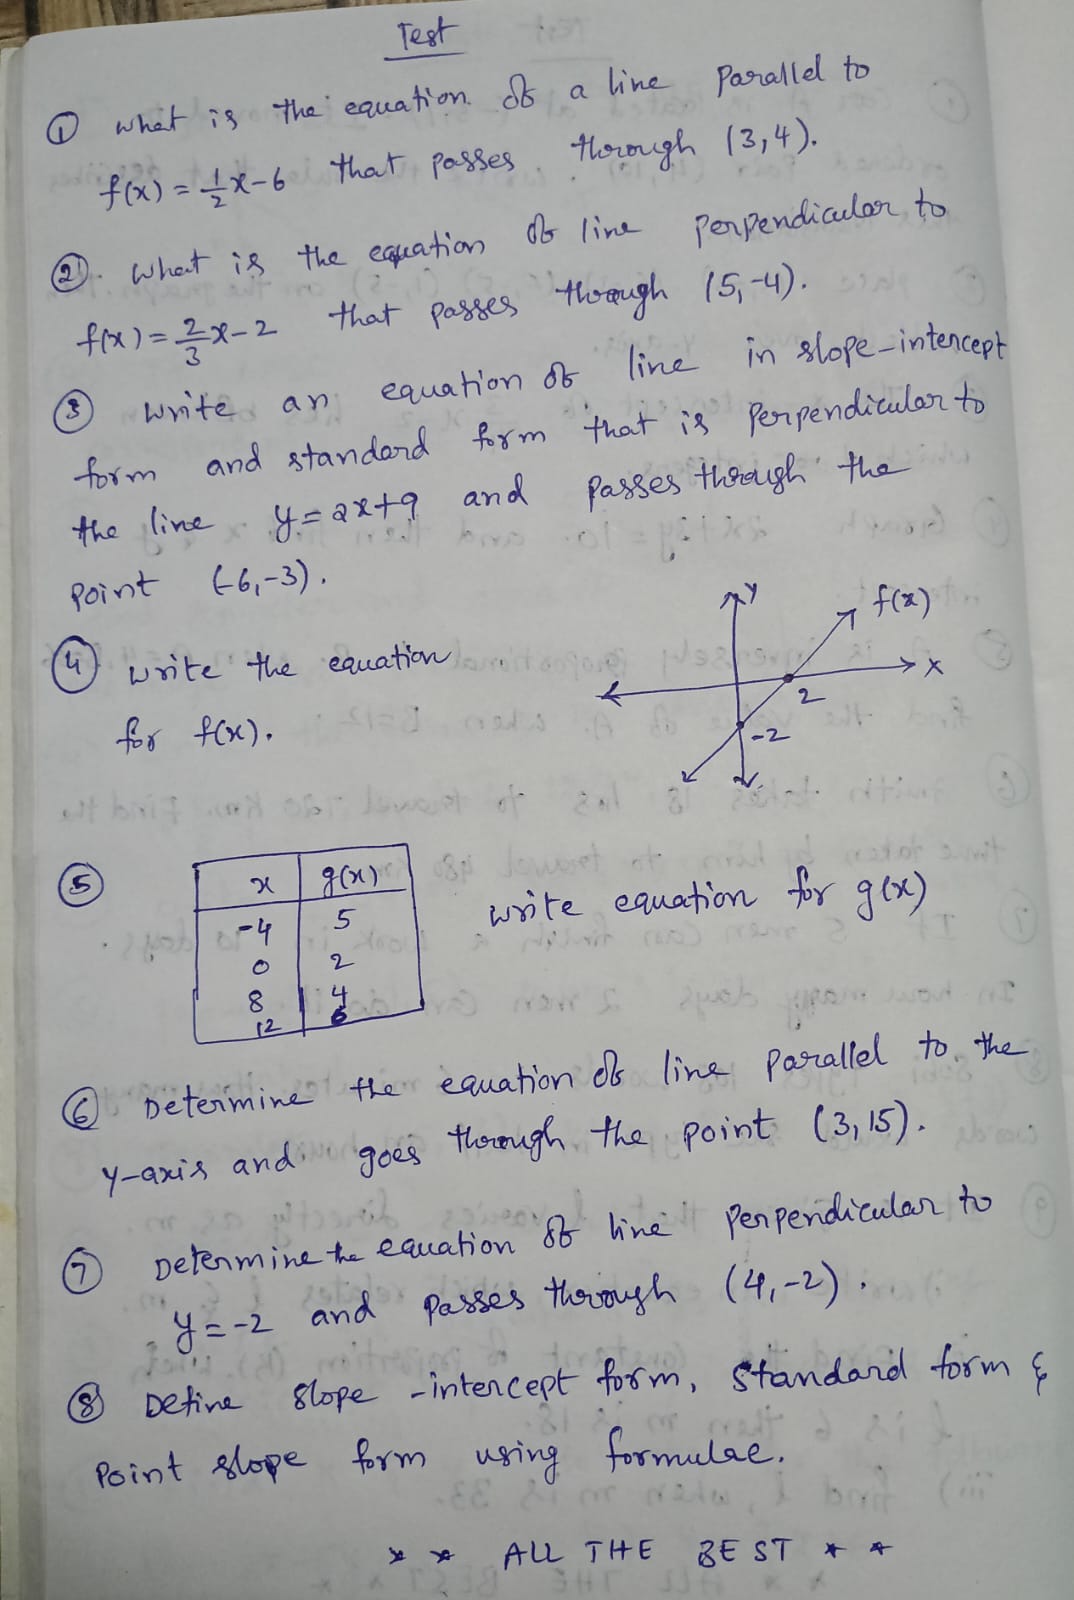 Test
① What is the equation of a line parallel to
f(x) = 1/2 x - 6 that passes through (3,4).
②. What is the equation of line perpendicular to
f(x) = 2/3 x - 2 that passes through (5,-4).
③ Write an equation of line in slope-intercept
form and standard form that is perpendicular to
the line y = 2x+9 and passes through the
point (-6,-3).
④ Write the equation
for f(x).
y
f(x)
x
2
-2
⑤
x g(x)
-4 5
0 2
8 4
12 6
Write equation for g(x)
⑥ Determine the equation of line parallel to the
y-axis and goes through the point (3,15).
⑦ Determine the equation of line perpendicular to
y = -2 and passes through (4,-2).
⑧ Define slope-intercept form, standard form &
point slope form using formulae.
* * ALL THE BEST * *